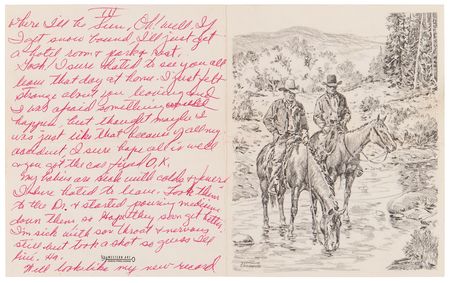 II
where I'll be Sun. Oh! well, If
I get snow bound I'll just get
a hotel room & park & rest.
Gosh! I sure hated to see you all
leave that day at home. I just felt
strange about you leaving and
I was afraid something would
happen, but thought maybe I
was just like that because of all my
accident, I sure hope all is well
& you got the car fixed O.K.
My babies are sick with colds & fevers
I sure hated to leave. Took them
to the Dr. & started pouring medicine
down them, so Hope they soon get better,
I'm sick with sore throat & nervous
still but took a shot so guess I'll
live. Ha.
Well looks like my new record
WESTERN ART